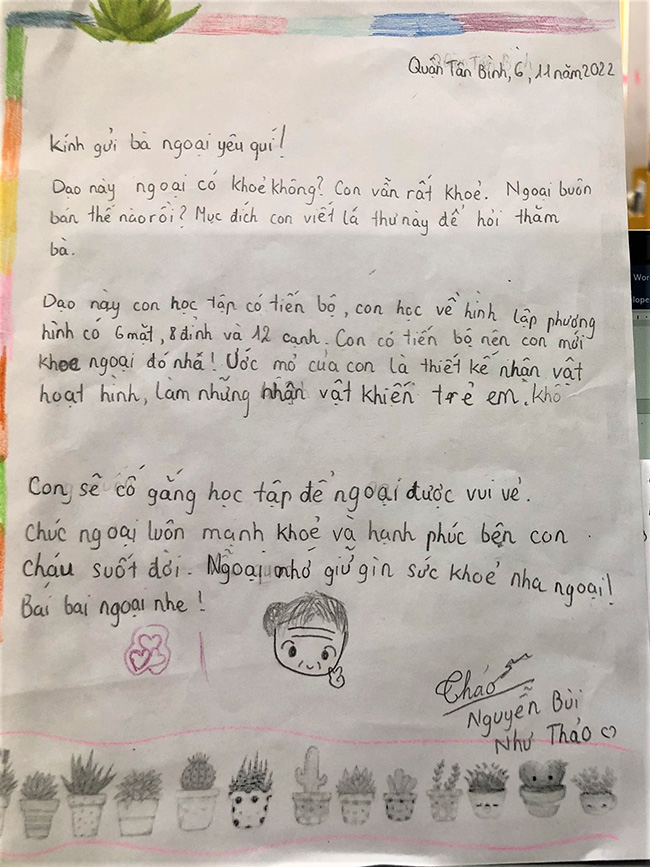 Quận Tân Bình, 6, 11 năm 2022
Kính gửi bà ngoại yêu quí!
Dạo này ngoại có khoẻ không? Con vẫn rất khoẻ. Ngoại buôn
bán thế nào rồi? Mục đích con viết lá thư này để hỏi thăm
bà.
Dạo này con học tập có tiến bộ, con học về hình lập phương
hình có 6 mặt, 8 đỉnh và 12 cạnh. Con có tiến bộ nên con mới
khoe ngoại đó nhá! Ước mơ của con là thiết kế nhân vật
hoạt hình, làm những nhận vật khiến trẻ em. khô
Con sẽ cố gắng học tập để ngoại được vui vẻ.
Chúc ngoại luôn mạnh khoẻ và hạnh phúc bên con
cháu suốt đời. Ngoại nhớ giữ gìn sức khoẻ nha ngoại!
Bái bai ngoại nhe!
Thảo
Nguyễn Bùi
Như Thảo
Wor
elope